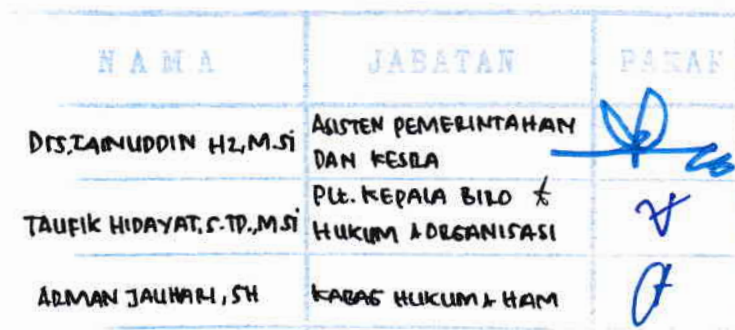 NAMA JABATAN PARAF
Drs. ZAINUDDIN HZ, M.Si ASISTEN PEMERINTAHAN
DAN KESRA
TAUFIK HIDAYAT, S.TP., M.Si Plt. KEPALA BIRO
HUKUM & ORGANISASI
ARMAN JAUHARI, SH KABAG HUKUM & HAM